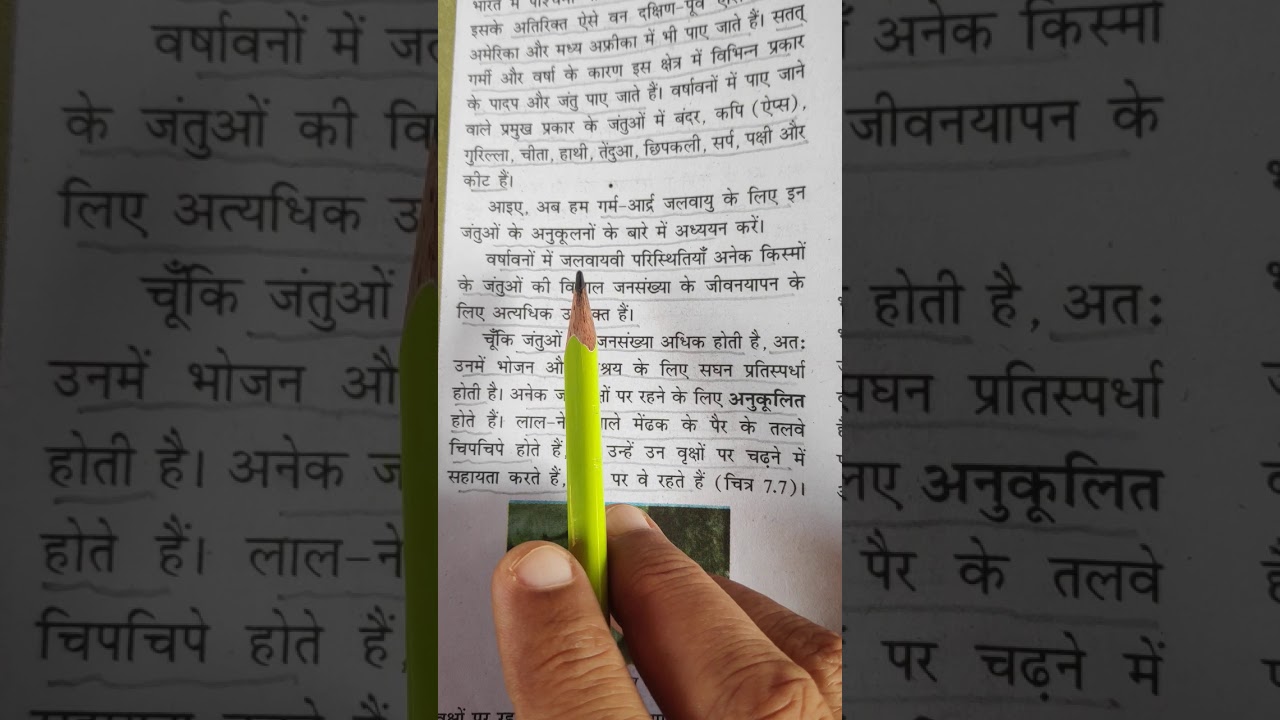 भारत में
इसके अतिरिक्त ऐसे वन दक्षिण-पूर्व
अमेरिका और मध्य अफ्रीका में भी पाए जाते हैं। सतत्
गर्मी और वर्षा के कारण इस क्षेत्र में विभिन्न प्रकार
के पादप और जंतु पाए जाते हैं। वर्षावनों में पाए जाने
वाले प्रमुख प्रकार के जंतुओं में बंदर, कपि (ऐप्स),
गुरिल्ला, चीता, हाथी, तेंदुआ, छिपकली, सर्प, पक्षी और
कीट हैं।
आइए, अब हम गर्म-आर्द्र जलवायु के लिए इन
जंतुओं के अनुकूलनों के बारे में अध्ययन करें।
वर्षावनों में जलवायवी परिस्थितियाँ अनेक किस्मों
के जंतुओं की जनसंख्या के जीवनयापन के
लिए अत्यधिक हैं।
चूँकि जंतुओं जनसंख्या अधिक होती है, अतः
उनमें भोजन के लिए सघन प्रतिस्पर्धा
होती है। अनेक पर रहने के लिए अनुकूलित
होते हैं। मेंढक के पैर के तलवे
चिपचिपे होते हैं उन्हें उन वृक्षों पर चढ़ने में
सहायता करते हैं, पर वे रहते हैं (चित्र 7.7)।